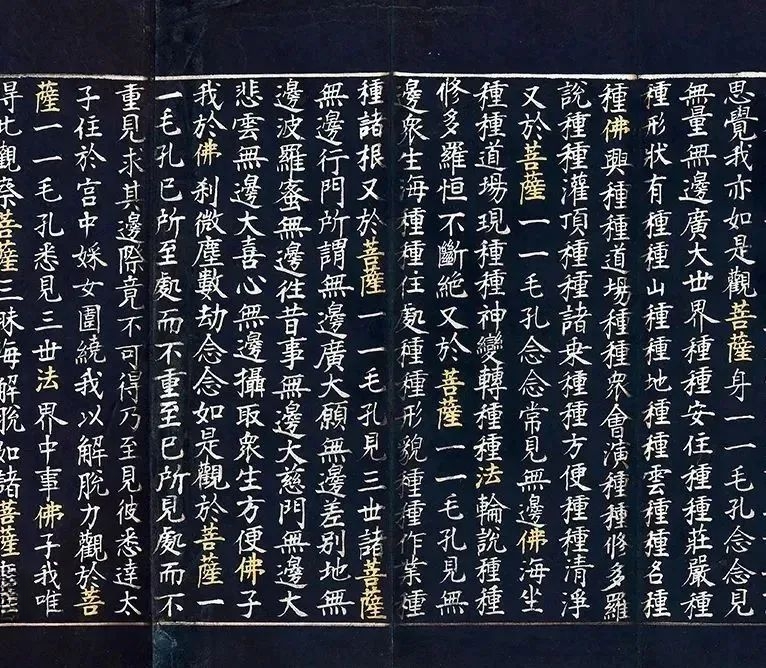 思覺我亦如是觀菩薩身一一毛孔念念見
無量無邊廣大世界種種安住種種莊嚴種
種形狀有種種山種種地種種雲種種名種
種佛興種種道場種種衆會演種種修多羅
說種種灌頂種種諸乘種種方便種種清淨
又於菩薩一一毛孔念念常見無邊佛海坐
種種道場現種種神變轉種種法輪說種種
修多羅恒不斷絕又於菩薩一一毛孔見無
邊衆生海種種住處種種形貌種種作業種
種諸根又於菩薩一一毛孔見三世諸菩薩
無邊行門所謂無邊廣大願無邊差別地無
邊波羅蜜無邊往昔事無邊大慈門無邊大
悲雲無邊大喜心無邊攝取衆生方便佛子
我於佛剎微塵數劫念念如是觀於菩薩一
一毛孔已所至處而不重至已所見處而不
重見求其邊際竟不可得乃至見彼悉達太
子住於宮中婇女圍繞我以解脫力觀於菩
薩一一毛孔悉見三世法界中事佛子我唯
得此觀察菩薩三昧海解脫如諸菩薩